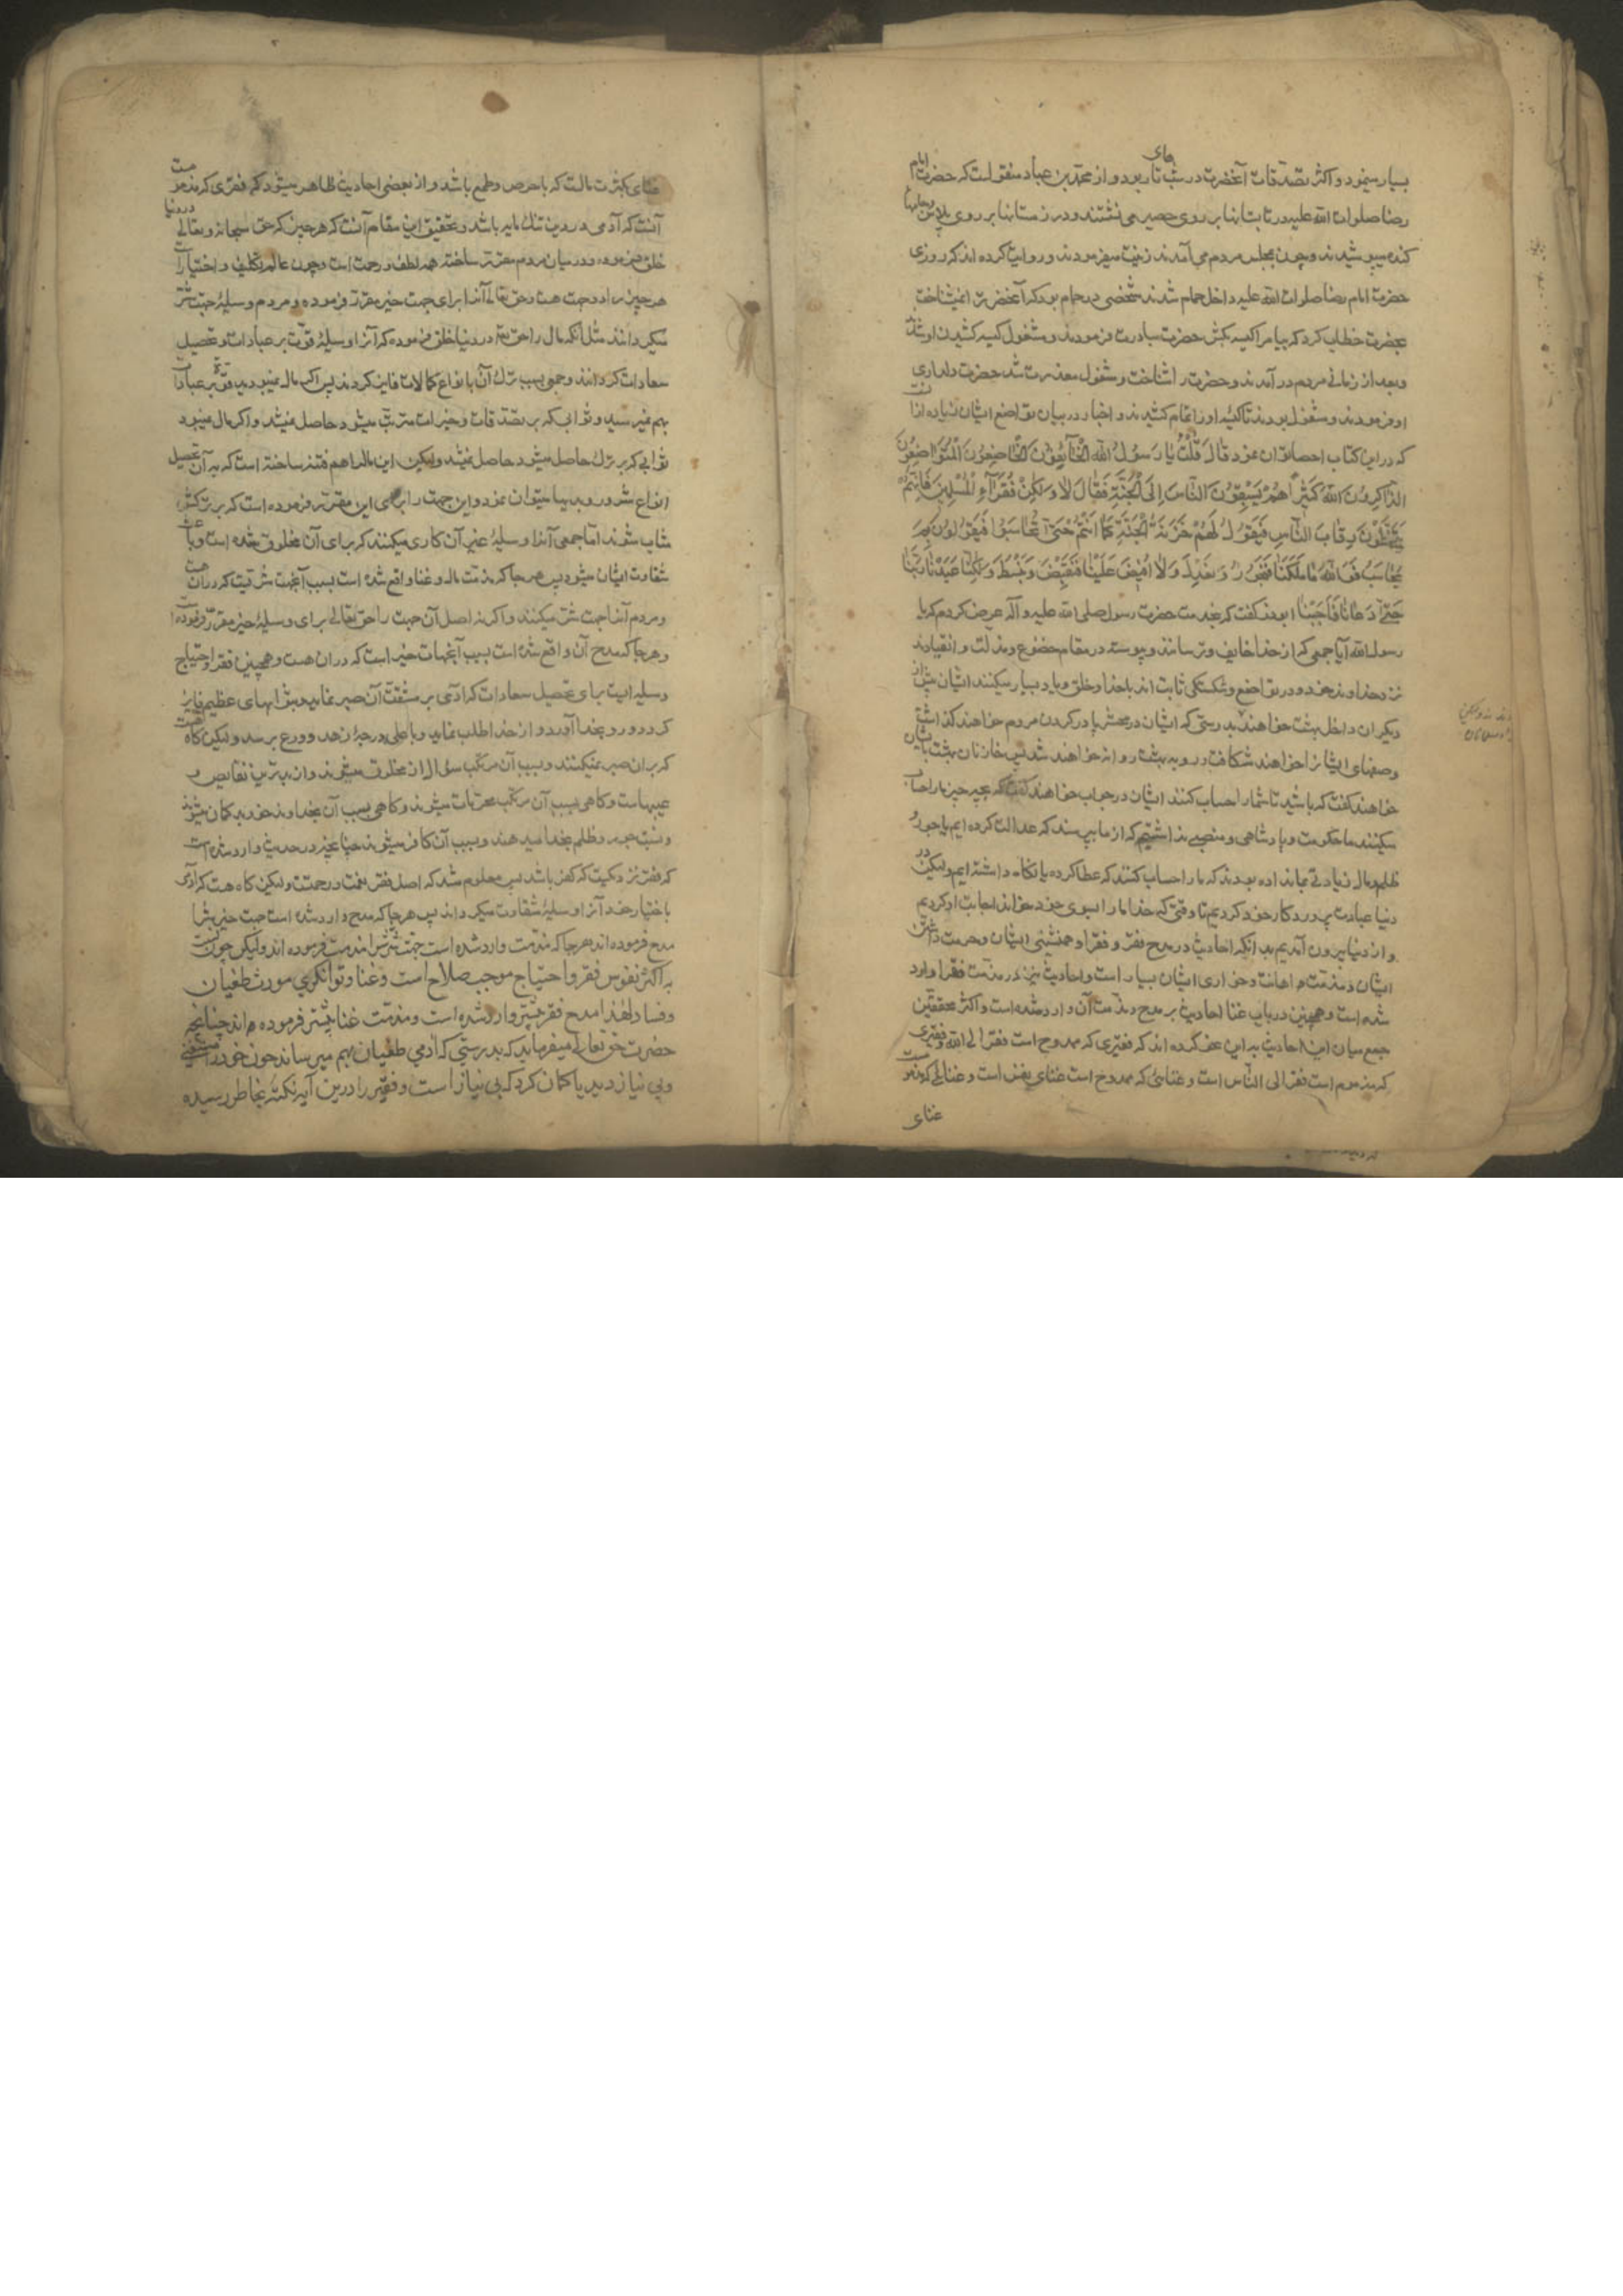 بسیار مینمود و اکثر تصدقات آنحضرت در شبهای تار بود و از محمد بن عباد منقولست که حضرت امام
رضا صلوات الله علیه در تابستانها بر روی حصیر می نشستند و در زمستانها بر روی پلاس و جامهای
کنده میپوشیدند و چون بمجلس مردم می آمدند زینت میفرمودند و روایت کرده اند که روزی
حضرت امام رضا صلوات الله علیه داخل حمام شدند شخصی در حمام بود که آنحضرت را نمیشناخت
بحضرت خطاب کرد که بیا مرا کیسه بکش حضرت مبادرت فرمودند و مشغول کیسه کشیدن او شدند
و بعد از زمانی مردم در آمدند و حضرت را شناخت و مشغول معذرت شد حضرت دلداری
او فرمودند و مشغول بودند تا کیسه او را تمام کشیدند و اخبار در بیان تواضع ایشان زیاده از آنست
که در این کتاب احصا توان نمود قَالَ قُلْتُ یَا رَسُولَ اللهِ الْخَائِفُونَ الْخَاضِعُونَ الْمُتَوَاضِعُونَ
الذَّاکِرُونَ اللهَ کَثِیراً هُمْ یَسْبِقُونَ النَّاسَ اِلَی الْجَنَّةِ فَقَالَ لَا وَلَکِنْ فُقَرَآءُ الْمُسْلِمِینَ فَاِنَّهُمْ
یَتَخَطَّوْنَ رِقَابَ النَّاسِ فَیَقُولُ لَهُمْ خَزَنَةُ الْجَنَّةِ کَمَا اَنْتُمْ حَتّی تُحَاسَبُوا فَیَقُولُونَ بِمَ
نُحَاسَبُ فَوَاللهِ مَا مَلَکْنَا فَنَجُورَ وَنَعْدِلَ وَلَا اُفِیضَ عَلَیْنَا فَنَقْبِضَ وَنَبْسُطَ وَلَکِنَّا عَبَدْنَا رَبَّنَا
حَتّی دَعَانَا فَاَجَبْنَا ابوذر گفت که بخدمت حضرت رسول صلی الله علیه و آله عرض کردم که یا
رسول الله آیا جمعی که از خدا خایف و ترسانند و پیوسته در مقام خضوع و مذلت و انقیادند
نزد خداوند خود و در تواضع و شکستگی ثابت اند با خدا و خلق و یاد بسیار میکنند ایشان پیش از
دیگران داخل بهشت خواهند بدرستی که ایشان در محشر پا در گردن مردم خواهند گذاشت
وصفهای ایشانرا خواهند شکافت و رو به بهشت روانه خواهند شد پس خازنان بهشت بایشان
خواهند گفت که باشید تا شما را حساب کنند ایشان در جواب خواهند گفت که بچه چیز ما را حساب
میکنند ما حکومت و پادشاهی و منصبی نداشتیم که از ما بپرسند که عدالت کرده ایم یا جور و
ظلم و مال زیادتی بما نداده بودند که ما را حساب کنند که عطا کرده یا نگاه داشته ایم ولیکن در
دنیا عبادت پروردگار خود کردیم تا وقتی که خدا ما را بسوی خود خواند اجابت او کردیم
و از دنیا بیرون آمدیم بدانکه احادیث در مدح فقر و فقرا و همنشینی ایشان و حرمت داشتن
ایشان و مذمت اهانت و خواری ایشان بسیار است و احادیث نیز در مذمت فقر وارد
شده است و همچنین در باب غنا احادیث بر مدح و مذمت آن وارد شده است و اکثر محققین
جمع میان این احادیث به این نحو کرده اند که فقیری که ممدوح است فقر الی الله و فقیری
که مذموم است فقر الی النّاس است و غنائی که ممدوح است غنای نفس است و غنائی که مذموست
غنای
غنای بکثرت مالست که با حرص و طمع باشد و از بعضی احادیث ظاهر میشود که فقری که مذمومست
آنست که آدمی در دین تنک مایه باشد و تحقیق این مقام آنست که هر چیز که حق سبحانه و تعالی در دنیا
خلق فرموده و در میان مردم مقرر ساخته همه لطف و رحمت است و چون عالم تکلیف و اختیار است
هر چیز را دو جهت هست و حق تعالی آنرا برای جهت خیر مقرر فرموده و مردم وسیلهٔ جهت شر
میگردانند مثل آنکه مال را حق تعالی در دنیا خلق فرموده که آنرا وسیلهٔ قوت بر عبادات و تحصیل
سعادات گردانند و جمعی بسبب ترک آن بانواع کمالات فایز گردند پس اگر مال نمیبود قوت بر عبادات
بهم نمیرسید و ثوابی که بر تصدقات و خیرات مترتب میشود حاصل نمیشد و اگر مال نمیبود
ثوابی که بر ترک حاصل میشود حاصل نمیشد ولیکن این مال را هم فتنه ساخته است که به آن تحصیل
انواع شرور و بدیها میتوان نمود و این جهت را برای این مقرر فرموده است که بر ترکش
مثاب شوند اما جمعی آنرا وسیلهٔ غیر آن کاری میکنند که برای آن مخلوق شده است و باعث
شقاوت ایشان میشود پس هر جا که مذمت مال و غنا واقع شده است بسبب آنجهت شریست که در آن هست
و مردم آنرا جهت شر میکنند و اگر نه اصل آن جهت را حق تعالی برای وسیلهٔ خیر مقرر فرموده
و هر جا که مدح آن واقع شده است بسبب آنجهات خیر است که در آن هست و همچنین فقر و احتیاج
وسیله ایست برای تحصیل سعادات که آدمی بر مشقت آن صبر نماید و بثوابهای عظیم فایز
گردد و رو بخدا آورد و از خدا طلب نماید و باعلی درجهٔ زهد و ورع برسد ولیکن گاه هست
که بر آن صبر نمیکنند و بسبب آن مرتکب سؤال از مخلوق میشوند و آن بدترین نقایص و
عیبهاست و گاهی بسبب آن مرتکب محرمات میشوند و گاهی بسبب آن بخداوند خود بدگمان میشوند
و نسبت جور و ظلم بخدا میدهند و بسبب آن کافر میشوند چنانچه در حدیث وارد شده است
که فقر نزدیکست که کفر باشد پس معلوم شد که اصل فقر نعمت و رحمتست ولیکن گاه هست که آدمی
باختیار خود آنرا وسیلهٔ شقاوت میگرداند پس هر جا که مدح وارد شده است جهت خیرش را
مدح فرموده اند هر جا که مذمت وارد شده است جهت شرش را مذمت فرموده اند ولیکن چون نسبت
به اکثر نفوس فقر و احتیاج موجب صلاح است و غنا و توانگری مورث طغیان
و فساد لهٰذا مدح فقر بیشتر وارد شده است و مذمت غنا بیشتر فرموده اند چنانچه
حضرت حق تعالی میفرماید که بدرستی که آدمی طغیان بهم میرساند چون خود را مستغنی
و بی نیاز دید یا کمان کرد که بی نیاز است و فقیر را درین آیه نکتهٔ بخاطر رسیده